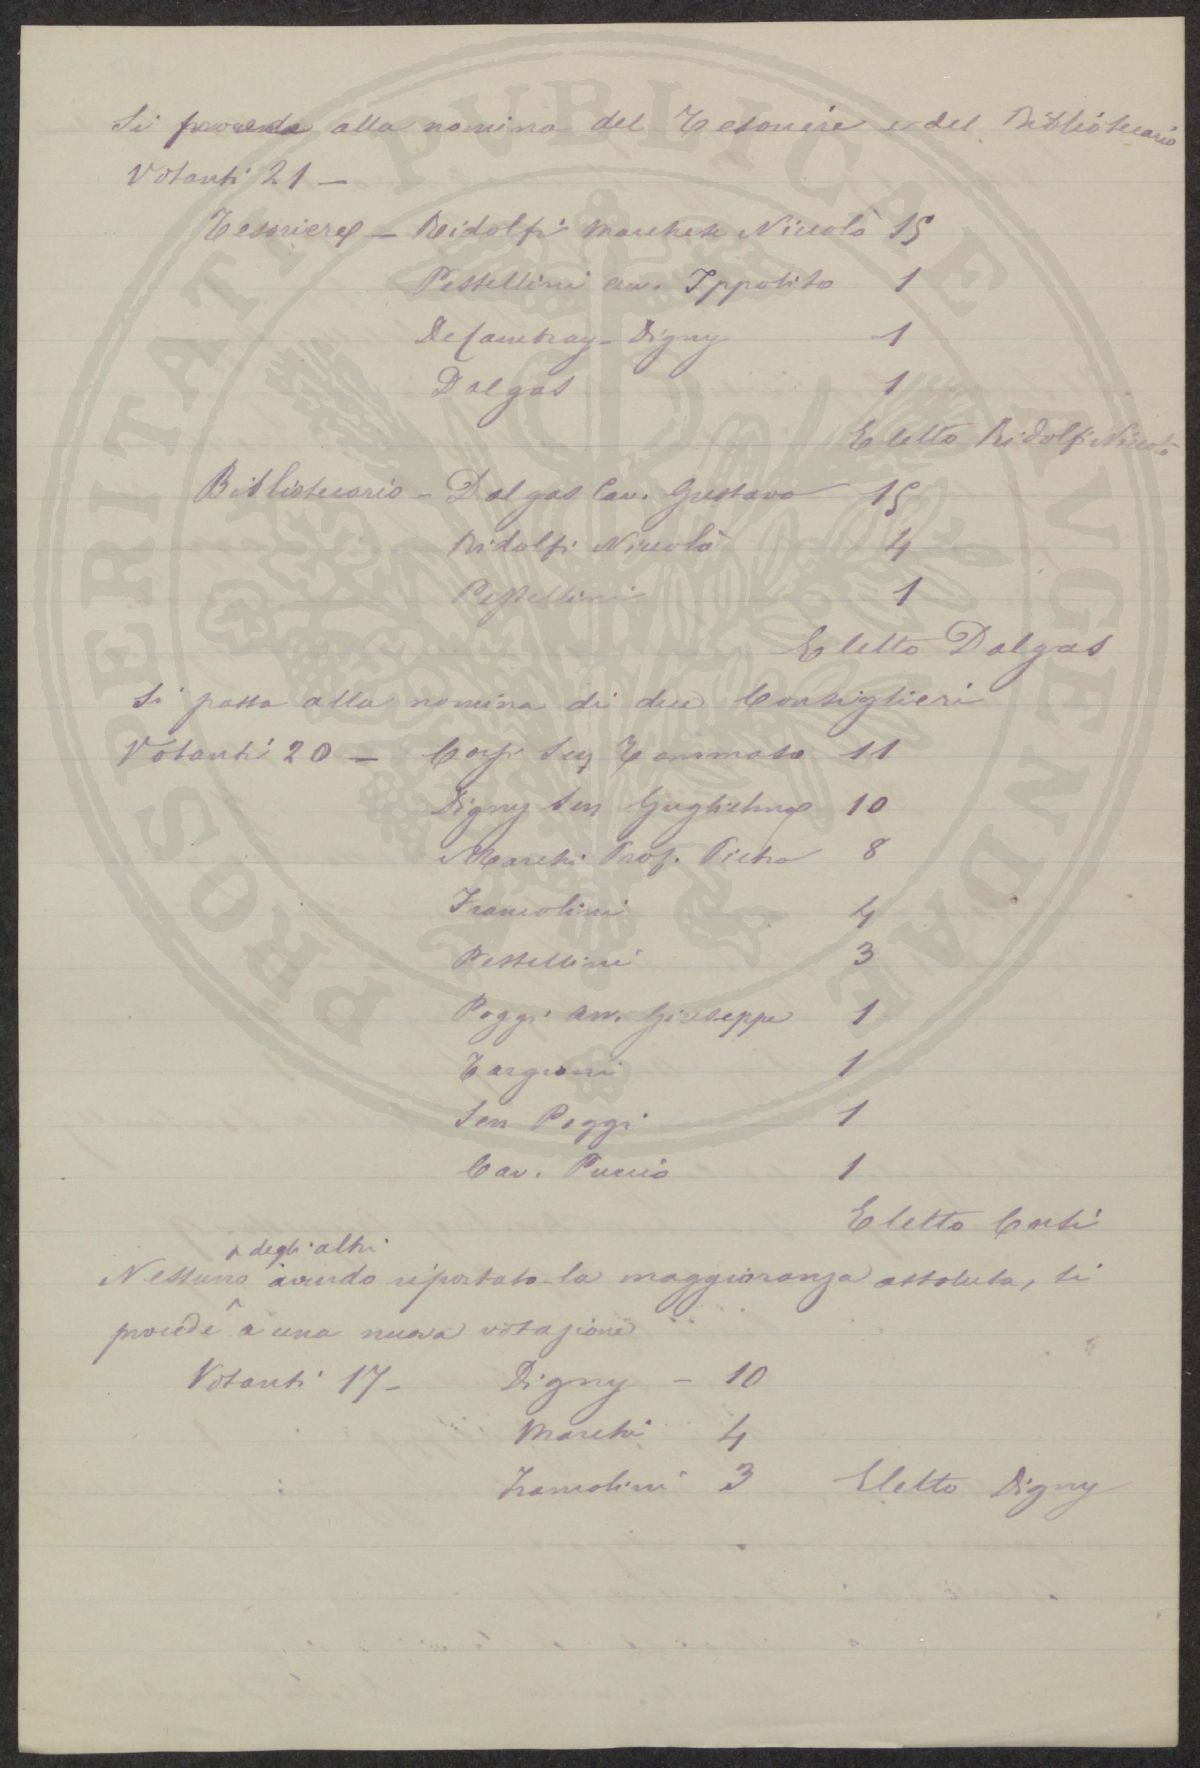 Si procede alla nomina del Tesoriere e del Bibliotecario
Votanti 21 —
Tesoriere — Ridolfi Marchese Niccolò 15
Pestellini av. Ippolito 1
De Cambray-Digny 1
Dalgas 1
Eletto Ridolfi Niccolò
Bibliotecario – Dalgas Cav. Gustavo 15
Ridolfi Niccolò 4
Pestellini 1
Eletto Dalgas
Si passa alla nomina di due Consiglieri
Votanti 20 — Corsi Sen Tommaso 11
Digny Sen Guglielmo 10
Marchi Prof. Pietro 8
Francolini 4
Pestellini 3
Poggi Avv. Giuseppe 1
Targioni 1
Sen Poggi 1
Cav. Puccio 1
Eletto Corsi
degli altri
Nessuno avendo riportato la maggioranza assoluta, si
procede a una nuova votazione
Votanti 17 – Digny – 10
Marchi 4
Francolini 3 Eletto Digny
PROSPERITATI PVBLICAE AVGENDAE